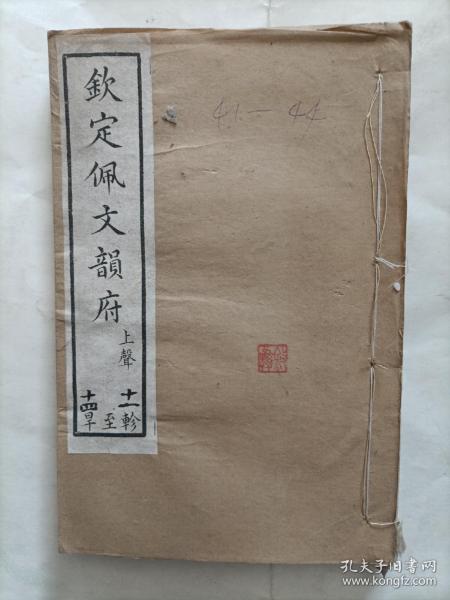 欽定佩文韻府
上聲
十一軫
至
十四旱
41-44
孔夫子旧书网
www.kongfz.com